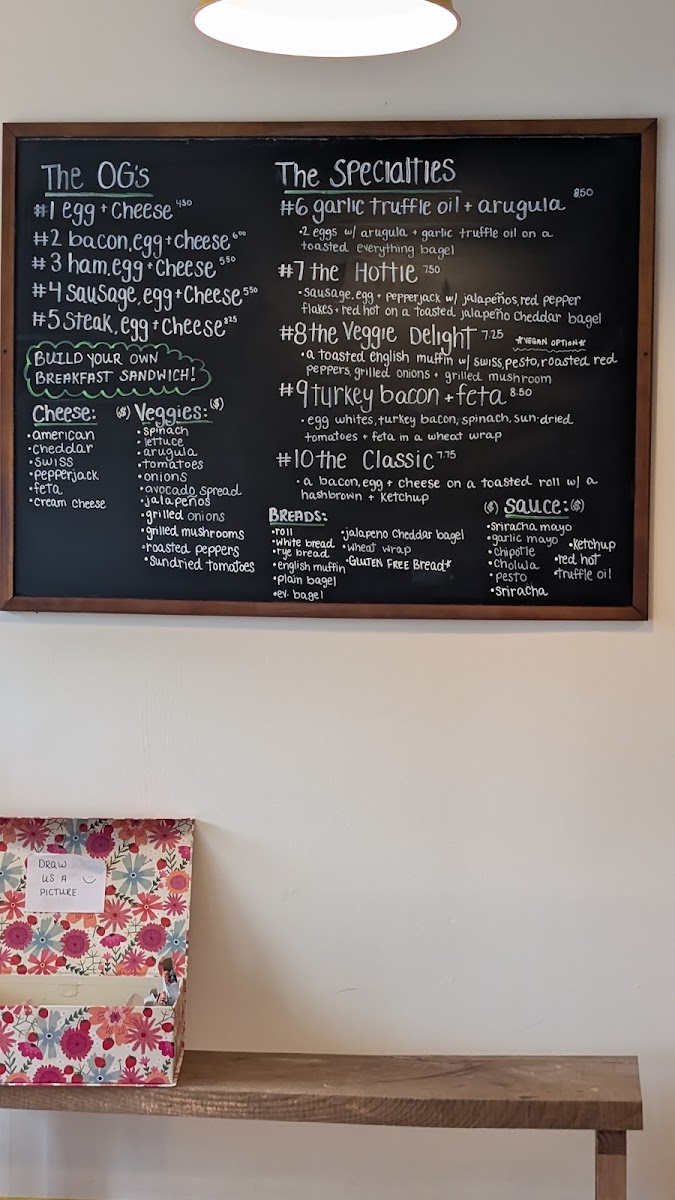 The OG's
#1 egg + cheese 4.50
#2 bacon, egg + cheese 6.00
#3 ham, egg + cheese 5.50
#4 sausage, egg + cheese 5.50
#5 steak, egg + cheese 8.25
BUILD YOUR OWN
BREAKFAST SANDWICH!
Cheese:
•american
•cheddar
•swiss
•pepperjack
•feta
•cream cheese
($) Veggies: ($)
•spinach
•lettuce
•arugula
•tomatoes
•onions
•avocado spread
•jalapeños
•grilled onions
•grilled mushrooms
•roasted peppers
•sundried tomatoes
The Specialties
#6 garlic truffle oil + arugula 8.50
•2 eggs w/ arugula + garlic truffle oil on a
toasted everything bagel
#7 the Hottie 7.50
•sausage, egg + pepperjack w/ jalapeños, red pepper
flakes + red hot on a toasted jalapeño cheddar bagel
#8 the Veggie Delight 7.25 *VEGAN OPTION*
•a toasted english muffin w/ swiss, pesto, roasted red
peppers, grilled onions + grilled mushroom
#9 turkey bacon + feta 8.50
•egg whites, turkey bacon, spinach, sun-dried
tomatoes + feta in a wheat wrap
#10 the Classic 7.75
•a bacon, egg + cheese on a toasted roll w/ a
hashbrown + ketchup
BREADS:
•roll
•white bread
•rye bread
•english muffin
•plain bagel
•ev. bagel
•jalapeno cheddar bagel
•wheat wrap
•GLUTEN FREE Bread*
($) Sauce: ($)
•sriracha mayo
•garlic mayo
•chipotle
•cholula
•pesto
•sriracha
•ketchup
•red hot
•truffle oil
DRAW
US A
PICTURE